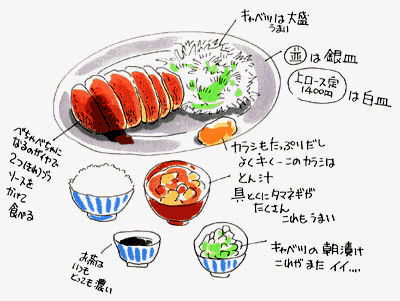 キャベツは大盛
うまい
並は銀皿
上ロース定
1400円
は白皿
カラシもたっぷりだし
よくキくーこのカラシは
とん汁
具とくにタマネギが
たくさん
これもうまい
べちゃべちゃに
なるのがイヤで
2つほおづつ
ソースを
かけて
食べる
お茶は
いつも
とっても濃い
キャベツの朝漬け
これがまたイイ....